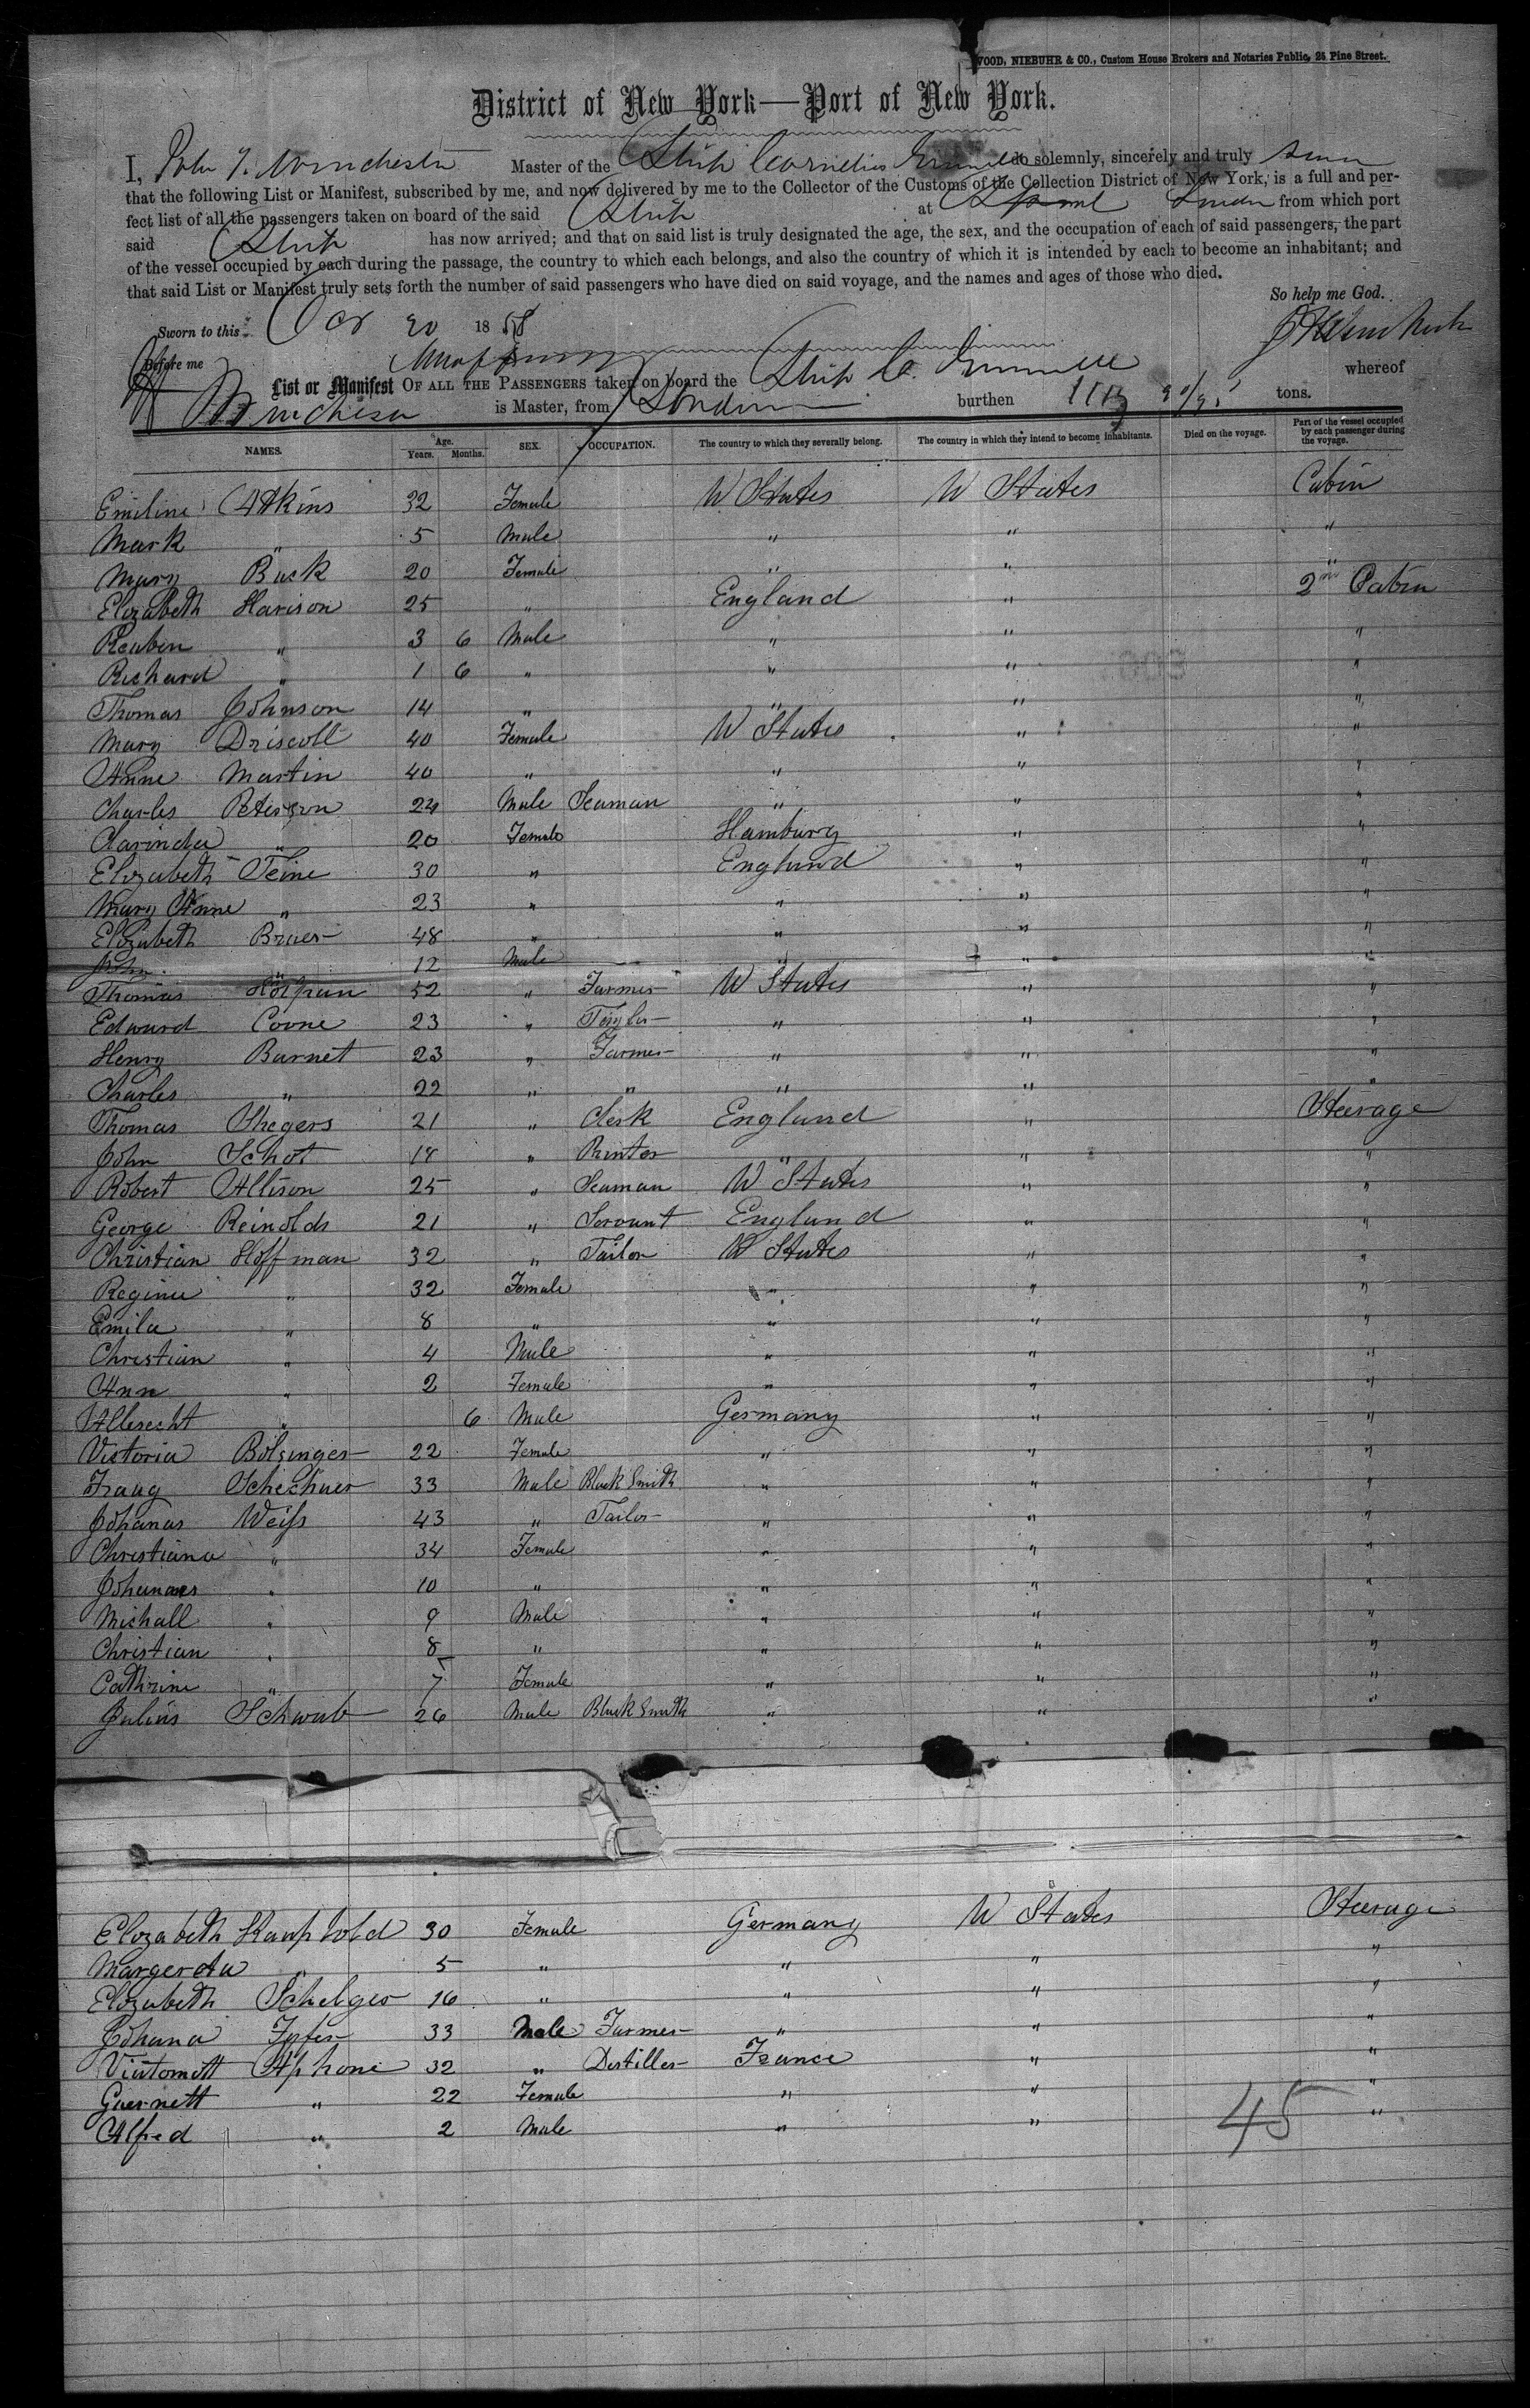 WOOD, NIEBUHR & CO., Custom House Brokers and Notaries Public, 25 Pine Street.
District of New York—Port of New York.
I, John F. Winchester Master of the Ship Cornelius Grinnell do solemnly, sincerely and truly swear
that the following List or Manifest, subscribed by me, and now delivered by me to the Collector of the Customs of the Collection District of New York, is a full and per-
fect list of all the passengers taken on board of the said Ship at London from which port
said Ship has now arrived; and that on said list is truly designated the age, the sex, and the occupation of each of said passengers, the part
of the vessel occupied by each during the passage, the country to which each belongs, and also the country of which it is intended by each to become an inhabitant; and
that said List or Manifest truly sets forth the number of said passengers who have died on said voyage, and the names and ages of those who died.
So help me God.
Sworn to this Oct 20 1858
Before me
List or Manifest OF ALL THE PASSENGERS taken on board the Ship C. Grinnell whereof
Winchester is Master, from London burthen tons.
NAMES. Age. Years. Months. SEX. OCCUPATION. The country to which they severally belong. The country in which they intend to become inhabitants. Died on the voyage. Part of the vessel occupied by each passenger during the voyage.
Emiline Atkins 32 Female U States U States Cabin
Mark " 5 Male " " "
Mary Buck 20 Female " " "
Elizabeth Harison 25 " England " 2nd Cabin
Reuben " 3 6 Male " " "
Richard " 1 6 " " " "
Thomas Johnson 14 " " " "
Mary Driscoll 40 Female U States " "
Anne Martin 40 " " " "
Charles Peterson 24 Male Seaman " " "
Clarinda " 20 Female Hamburg " "
Elizabeth Teine 30 " England " "
Mary Anne " 23 " " " "
Elizabeth Bruer 48 " " " "
John " 12 Male " " "
Thomas 52 " Farmer U States " "
Edward Coone 23 " " " "
Henry Burnet 23 " Farmer " " "
Charles " 22 " " " " "
Thomas Shegers 21 " Clerk England " Steerage
John Schot 18 " Printer " " "
Robert Allison 25 " Seaman U States " "
George Reinolds 21 " Servant England " "
Christian Hoffman 32 " Tailor U States " "
Regina " 32 Female " " "
Emila " 8 " " " "
Christian " 4 Male " " "
Ann " 2 Female " " "
Albrecht " 6 Male Germany " "
Victoria Bolzinger 22 Female " " "
Franz Schechner 33 Male Black Smith " " "
Johanas Weiss 43 " Tailor " " "
Christiana " 34 Female " " "
Johannes " 10 " " " "
Michall " 9 Male " " "
Christian " 8 " " " "
Cathrine " 7 Female " " "
Julius Schwab 26 Male Black Smith " " "
Elizabeth Kauphold 30 Female Germany U States Steerage
Margereta " 5 " " " "
Elizabeth Schelger 16 " " " "
Johana 33 Male Farmer " " "
Aphone 32 " Distiller France " "
Guernett " 22 Female " " "
Alfred " 2 Male " " "
45